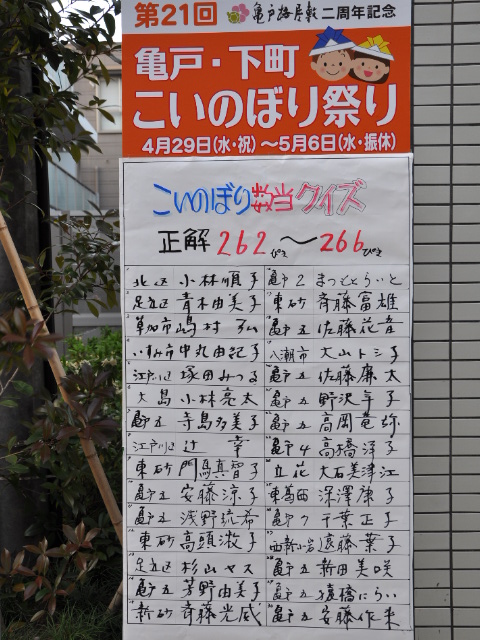 第21回 亀戸梅屋敷二周年記念
亀戸・下町
こいのぼり祭り
4月29日(水・祝)〜5月6日(水・振休)
こいのぼり数当クイズ
正解 262ぴき〜266ぴき
北区 小林順子
足立区 青木由美子
草加市 嶋村
いすみ市 中丸由紀子
江戸川区 塚田みつる
大島 小林亮太
亀戸五 寺島多美子
江戸川区 辻 幸
東砂 門馬真智子
亀戸五 安藤涼子
亀戸五 浅野琉希
東砂 高頭淑子
足立区 杉山ヤス
亀戸五 芳野由美子
新砂 斉藤光威
亀戸2 まつもとらいと
東砂 斉藤富雄
亀戸五 佐藤花音
八潮市 大山トシ子
亀戸五 佐藤廉太
亀戸五 野沢年子
亀戸五 高岡竜弥
亀戸4 高橋洋子
立花 大石美津江
東葛西 深澤康子
亀戸7 千葉正子
西新小岩 遠藤葉子
亀戸五 新田美咲
亀戸五 猿橋にらい
亀戸五 安藤作来